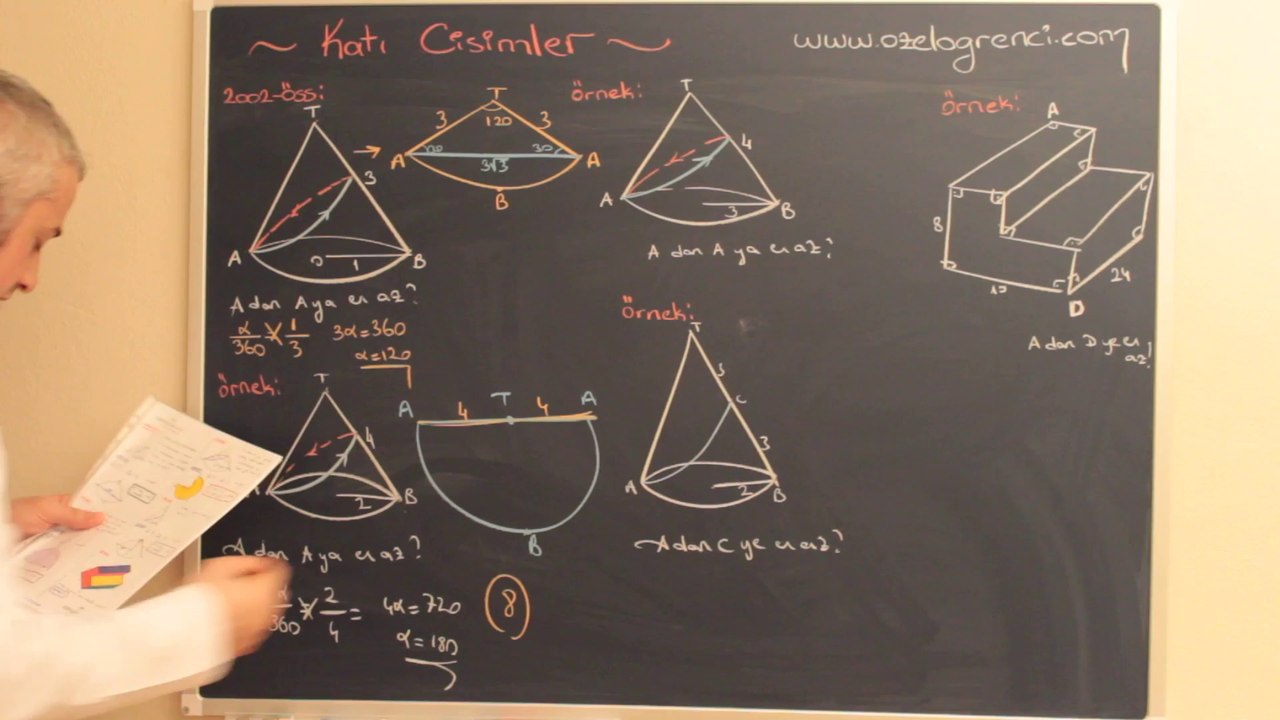 ~ Katı Cisimler ~
www.ozelogrenci.com
2002-ÖSS:
T
3
A
B
0 1
A dan A ya en az?
α/360 1/3
3α=360
α=120
→
T
120
3 3
A A
30
3√3
B
Örnek:
T
4
A
B
3
A dan A ya en az?
Örnek:
A
8
12
24
D
A dan D ye en
az?
Örnek:
T
4
B
2
A dan A ya en az?
α/360 2/4 =
4α=720
α=180
8
A 4 T 4 A
B
Örnek:
T
3
C
3
A
B
2
A dan C ye en az?